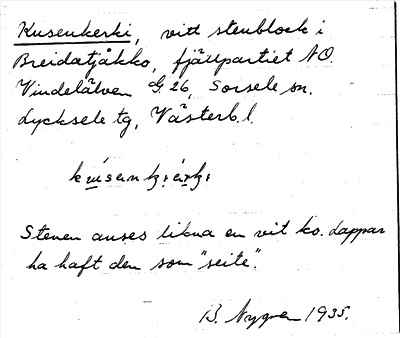 Kusenkerki, vitt stenblock i
Breidatjåkko, fjällpartiet NO.
Vindelälven G. 26, Sorsele sn.
Lycksele tg, Västerb. l.
Stenen anses likna en vit ko. Lappar
ha haft den som "seite".
B. Nygren 1935.